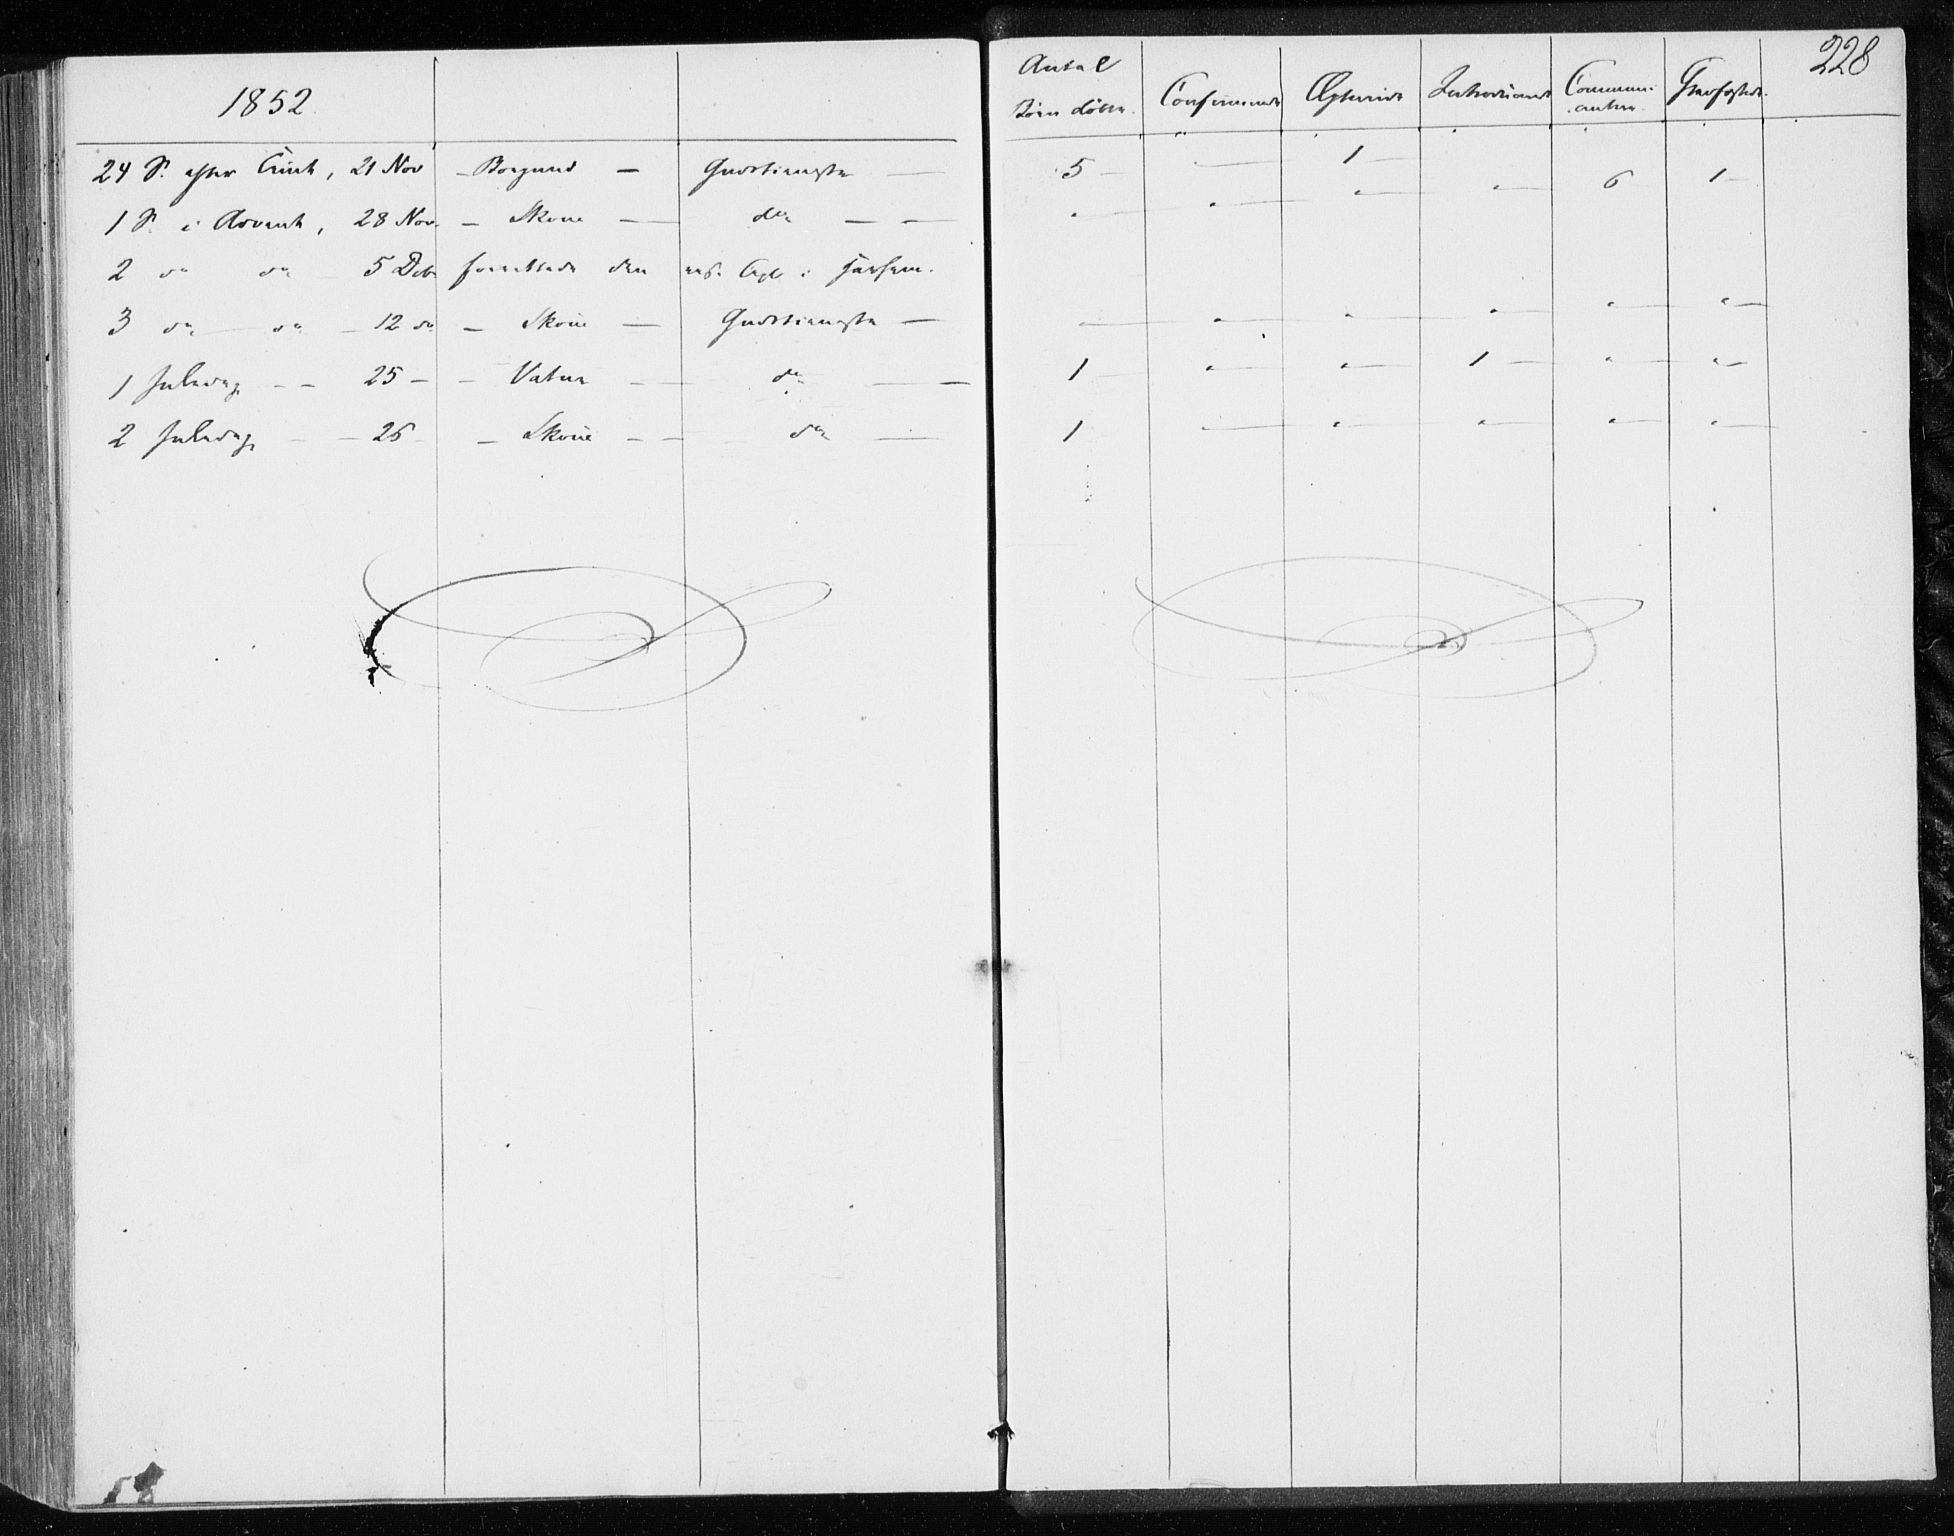 228
1852.
Antal Børn døbte. Confirmerede Ægteviede Introducerede Communi- canter. Gravfæstede.
24 S. efter Trinit, 21 Nov - Borgund - Gudstieneste - 5 - " 1 - 6 1
1 S. i Advent, 28 Nov. - Skoue - do - - " " " "
2 do do 5 Deb forrettede den i
3 do do - 12 do - Skoue - Gudstieneste - " " " " "
1 Juledag - - 25 - - Vatne - do - - 1 " " 1 " "
2 Juledag - - 26 - Skoue - - do - 1 " " " " "